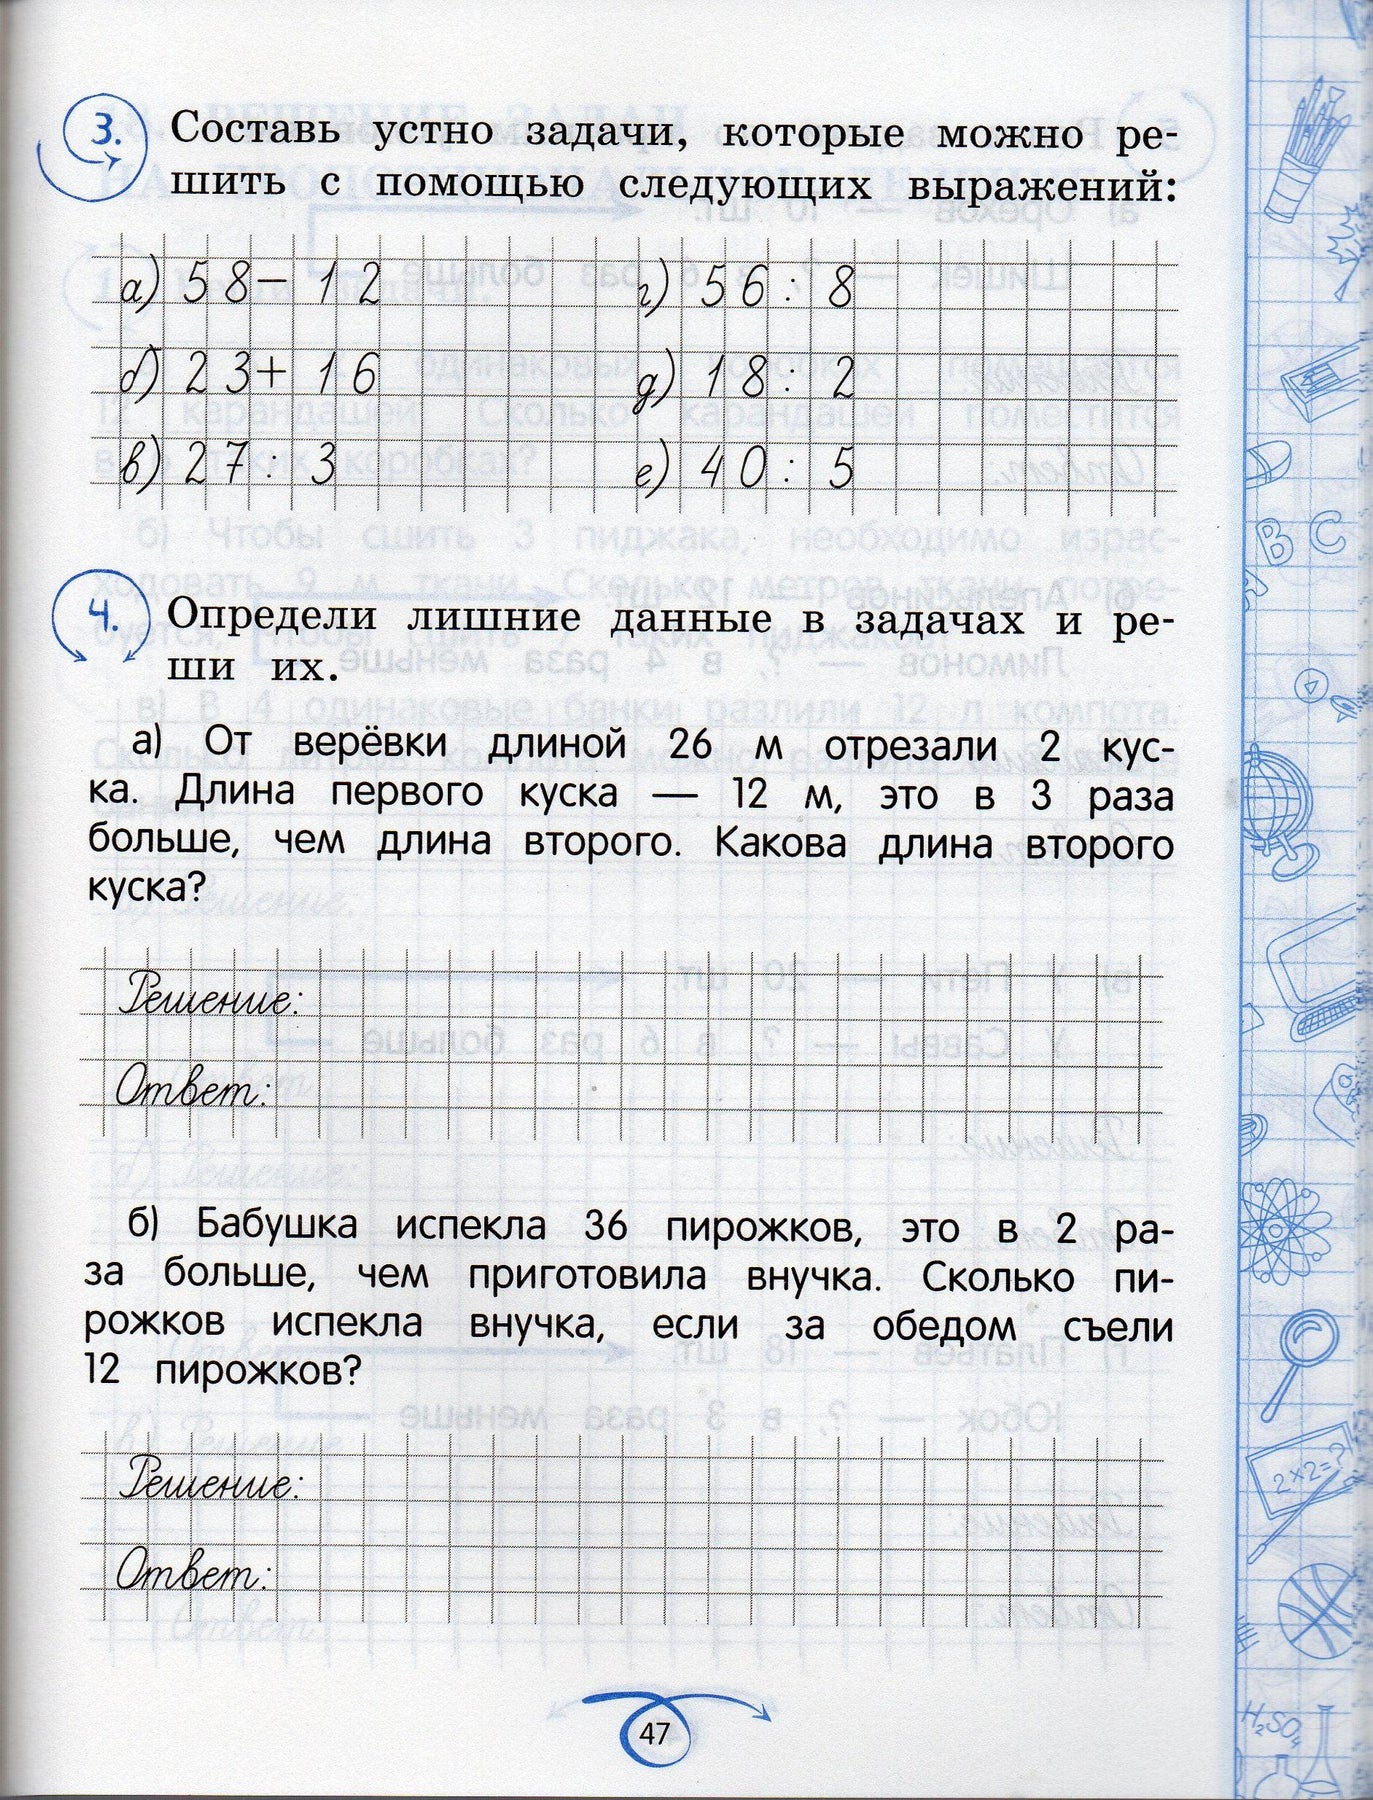 3. Составь устно задачи, которые можно ре-
шить с помощью следующих выражений:
а) 58 - 12
г) 56 : 8
б) 23 + 16
д) 18 : 2
в) 27 : 3
е) 40 : 5
4. Определи лишние данные в задачах и ре-
ши их.
а) От верёвки длиной 26 м отрезали 2 кус-
ка. Длина первого куска — 12 м, это в 3 раза
больше, чем длина второго. Какова длина второго
куска?
Решение:
Ответ:
б) Бабушка испекла 36 пирожков, это в 2 ра-
за больше, чем приготовила внучка. Сколько пи-
рожков испекла внучка, если за обедом съели
12 пирожков?
Решение:
Ответ:
47
B C
2×2=?
H₂SO₄